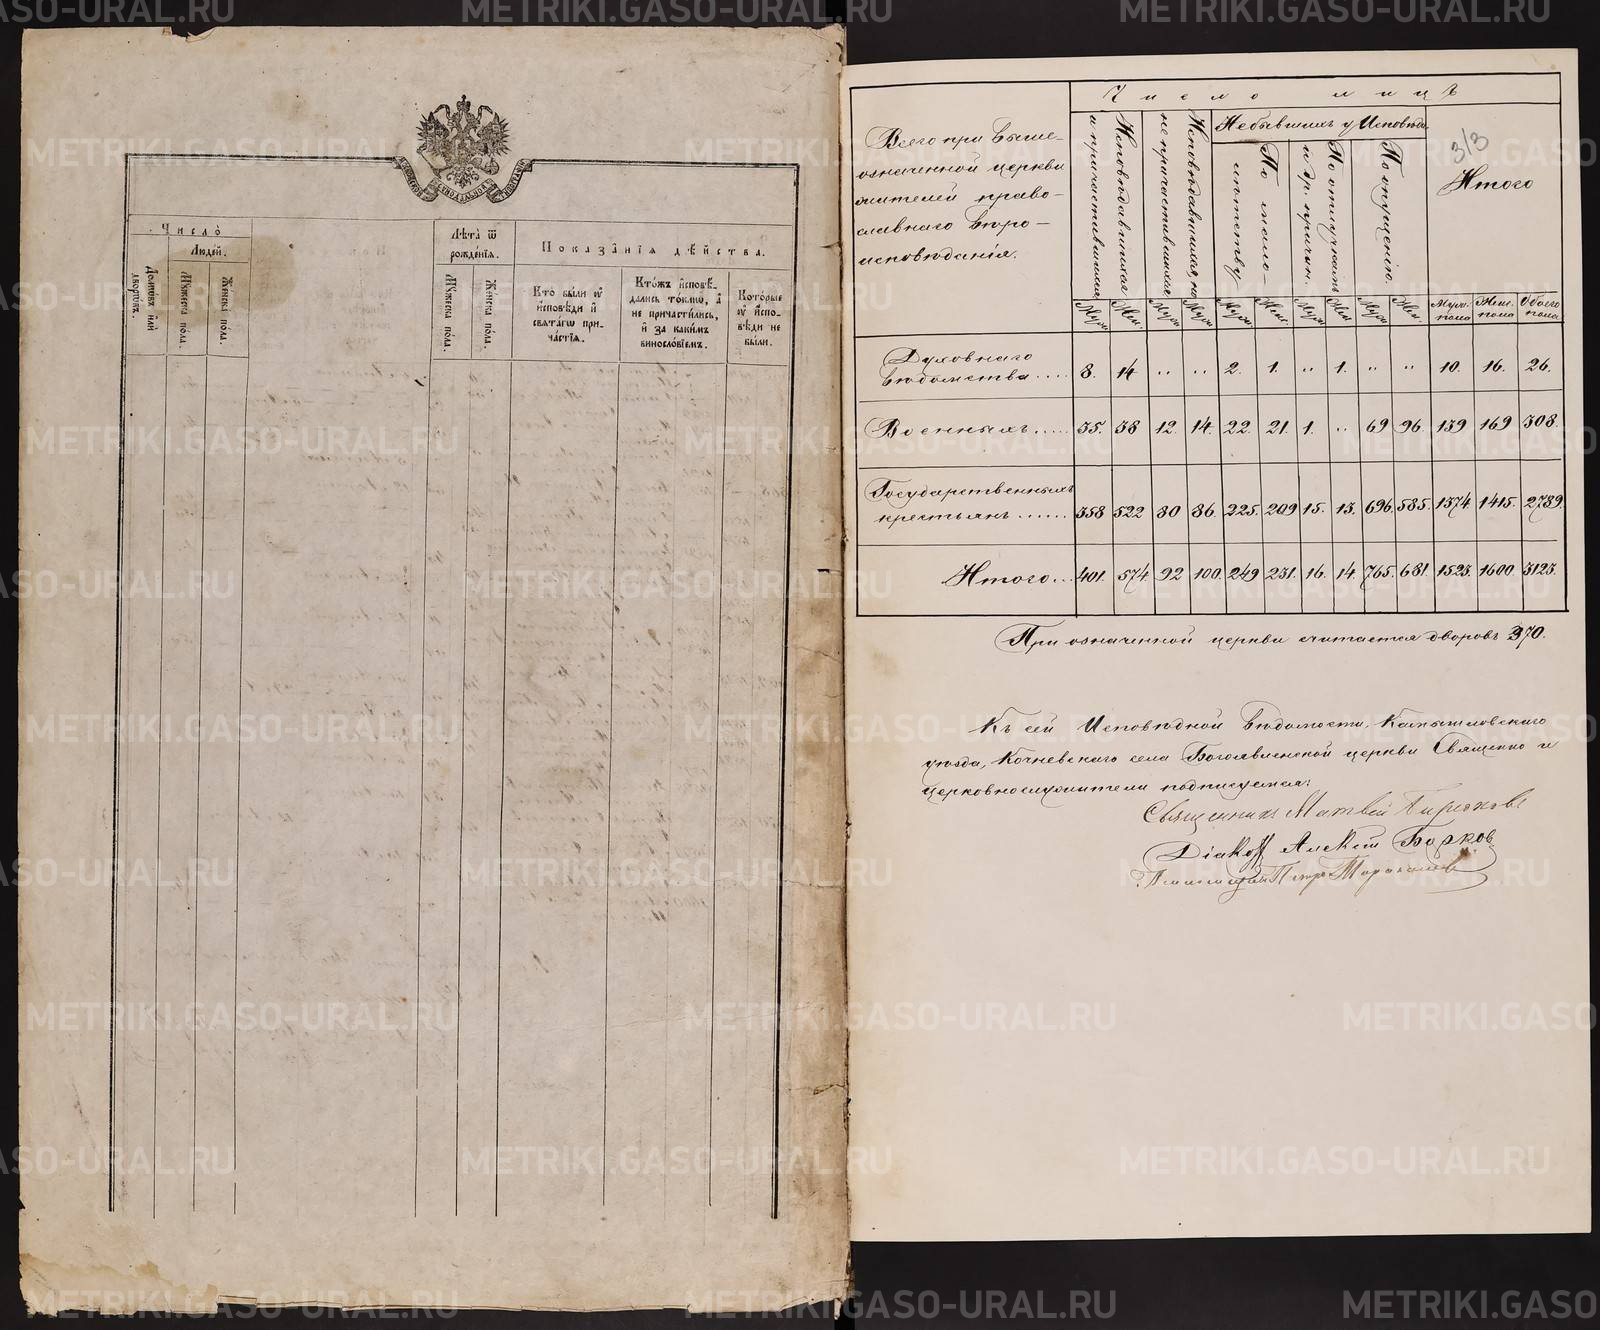 Число
Людей.
Дворовъ или
Мужеска пола.
Женска пола.
Лѣта ѿ
рожденїя.
Мужеска пола.
Женска пола.
Показанїя дѣйства.
Кто были ѹ
исповѣди и
свѧтагѡ при-
частїя.
Ктожъ исповѣ-
дались токмѡ, а
не причастились,
и за какимъ
винословїемъ.
Которые
ѹ испо-
вѣди не
были.
313
Всего при выше-
означенной церкви
жителей право-
славнаго вѣро-
исповѣданія.
Число лицъ
Исповѣдавшихся
и причастившихся
Исповѣдавшихся, но
не причастившихся
Небывшихъ у Исповѣди.
По мало-
лѣтству
По отлучкамъ
и др. причин.
По опущенію.
Итого
Муж. Жен. Муж. Муж. Муж. Жен. Муж. Жен. Муж. Жен. Муж. пола Жен. пола Обоего пола
Духовнаго
вѣдомства.... 8. 14 .. .. 2. 1. .. 1. .. .. 10. 16. 26.
Военныхъ..... 35. 38 12. 14. 22. 21. 1. .. 69 96. 139 169 308.
Государственныхъ
крестьянъ...... 358 522 80 86. 225. 209 15. 13. 696. 585. 1374. 1415. 2789.
Итого... 401. 574. 92 100. 249 231. 16. 14. 765. 681. 1523. 1600. 3123.
При означенной церкви считается дворовъ 370.
Къ сей Исповѣдной вѣдомости, Камышловскаго
уѣзда, Кочневскаго села Богоявленской церкви Священно и
церковнослужители подписуемся:
Священникъ Матвей
Діаконъ Алексій
METRIKI.GASO-URAL.RU